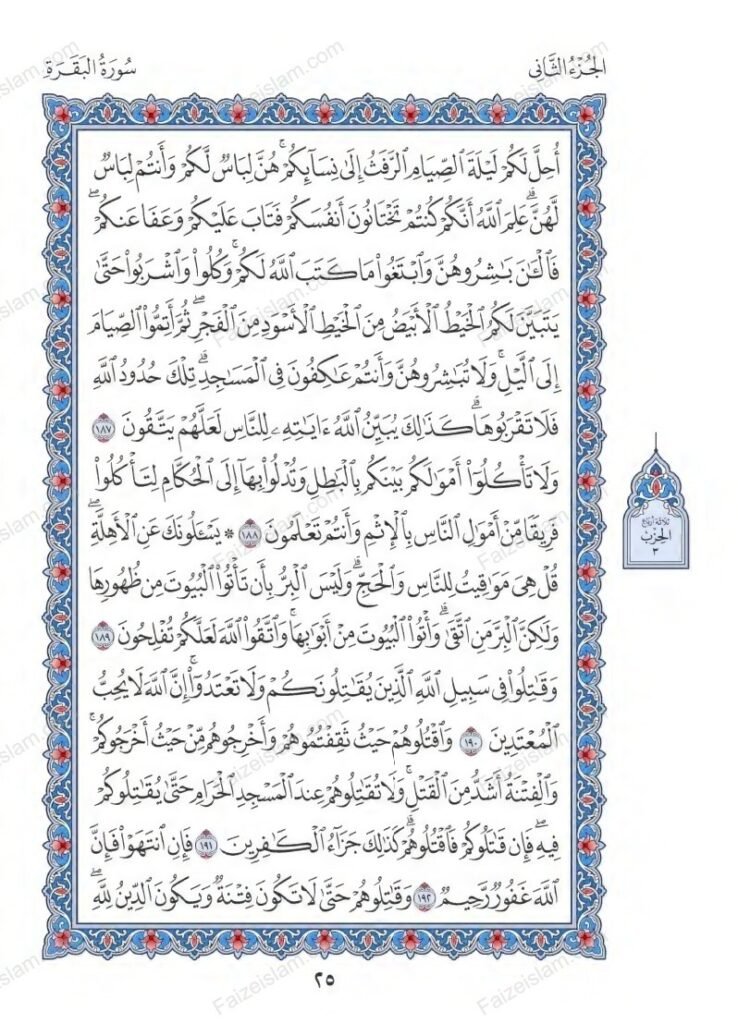 الجُزْءُ الثَّانِي
سُورَةُ البَقَرَةِ
أُحِلَّ لَكُمْ لَيْلَةَ ٱلصِّيَامِ ٱلرَّفَثُ إِلَىٰ نِسَآئِكُمْۚ هُنَّ لِبَاسٌ لَّكُمْ وَأَنتُمْ لِبَاسٌ
لَّهُنَّۗ عَلِمَ ٱللَّهُ أَنَّكُمْ كُنتُمْ تَخْتَانُونَ أَنفُسَكُمْ فَتَابَ عَلَيْكُمْ وَعَفَا عَنكُمْۖ
فَٱلْـَٰٔنَ بَـٰشِرُوهُنَّ وَٱبْتَغُوا۟ مَا كَتَبَ ٱللَّهُ لَكُمْۚ وَكُلُوا۟ وَٱشْرَبُوا۟ حَتَّىٰ
يَتَبَيَّنَ لَكُمُ ٱلْخَيْطُ ٱلْأَبْيَضُ مِنَ ٱلْخَيْطِ ٱلْأَسْوَدِ مِنَ ٱلْفَجْرِۖ ثُمَّ أَتِمُّوا۟ ٱلصِّيَامَ
إِلَى ٱلَّيْلِۚ وَلَا تُبَـٰشِرُوهُنَّ وَأَنتُمْ عَـٰكِفُونَ فِى ٱلْمَسَـٰجِدِۗ تِلْكَ حُدُودُ ٱللَّهِ
فَلَا تَقْرَبُوهَاۗ كَذَٰلِكَ يُبَيِّنُ ٱللَّهُ ءَايَـٰتِهِۦ لِلنَّاسِ لَعَلَّهُمْ يَتَّقُونَ ١٨٧
وَلَا تَأْكُلُوٓا۟ أَمْوَٰلَكُم بَيْنَكُم بِٱلْبَـٰطِلِ وَتُدْلُوا۟ بِهَآ إِلَى ٱلْحُكَّامِ لِتَأْكُلُوا۟
فَرِيقًا مِّنْ أَمْوَٰلِ ٱلنَّاسِ بِٱلْإِثْمِ وَأَنتُمْ تَعْلَمُونَ ١٨٨ * يَسْـَٔلُونَكَ عَنِ ٱلْأَهِلَّةِۖ
قُلْ هِىَ مَوَٰقِيتُ لِلنَّاسِ وَٱلْحَجِّۗ وَلَيْسَ ٱلْبِرُّ بِأَن تَأْتُوا۟ ٱلْبُيُوتَ مِن ظُهُورِهَا
وَلَـٰكِنَّ ٱلْبِرَّ مَنِ ٱتَّقَىٰۗ وَأْتُوا۟ ٱلْبُيُوتَ مِنْ أَبْوَٰبِهَاۚ وَٱتَّقُوا۟ ٱللَّهَ لَعَلَّكُمْ تُفْلِحُونَ ١٨٩
وَقَـٰتِلُوا۟ فِى سَبِيلِ ٱللَّهِ ٱلَّذِينَ يُقَـٰتِلُونَكُمْ وَلَا تَعْتَدُوٓا۟ۚ إِنَّ ٱللَّهَ لَا يُحِبُّ
ٱلْمُعْتَدِينَ ١٩٠ وَٱقْتُلُوهُمْ حَيْثُ ثَقِفْتُمُوهُمْ وَأَخْرِجُوهُم مِّنْ حَيْثُ أَخْرَجُوكُمْۚ
وَٱلْفِتْنَةُ أَشَدُّ مِنَ ٱلْقَتْلِۚ وَلَا تُقَـٰتِلُوهُمْ عِندَ ٱلْمَسْجِدِ ٱلْحَرَامِ حَتَّىٰ يُقَـٰتِلُوكُمْ
فِيهِۖ فَإِن قَـٰتَلُوكُمْ فَٱقْتُلُوهُمْۗ كَذَٰلِكَ جَزَآءُ ٱلْكَـٰفِرِينَ ١٩١ فَإِنِ ٱنتَهَوْا۟ فَإِنَّ
ٱللَّهَ غَفُورٌ رَّحِيمٌ ١٩٢ وَقَـٰتِلُوهُمْ حَتَّىٰ لَا تَكُونَ فِتْنَةٌ وَيَكُونَ ٱلدِّينُ لِلَّهِۖ
ثلاثة أرباع
الحزب
٣
٢٥
Faizeislam.com